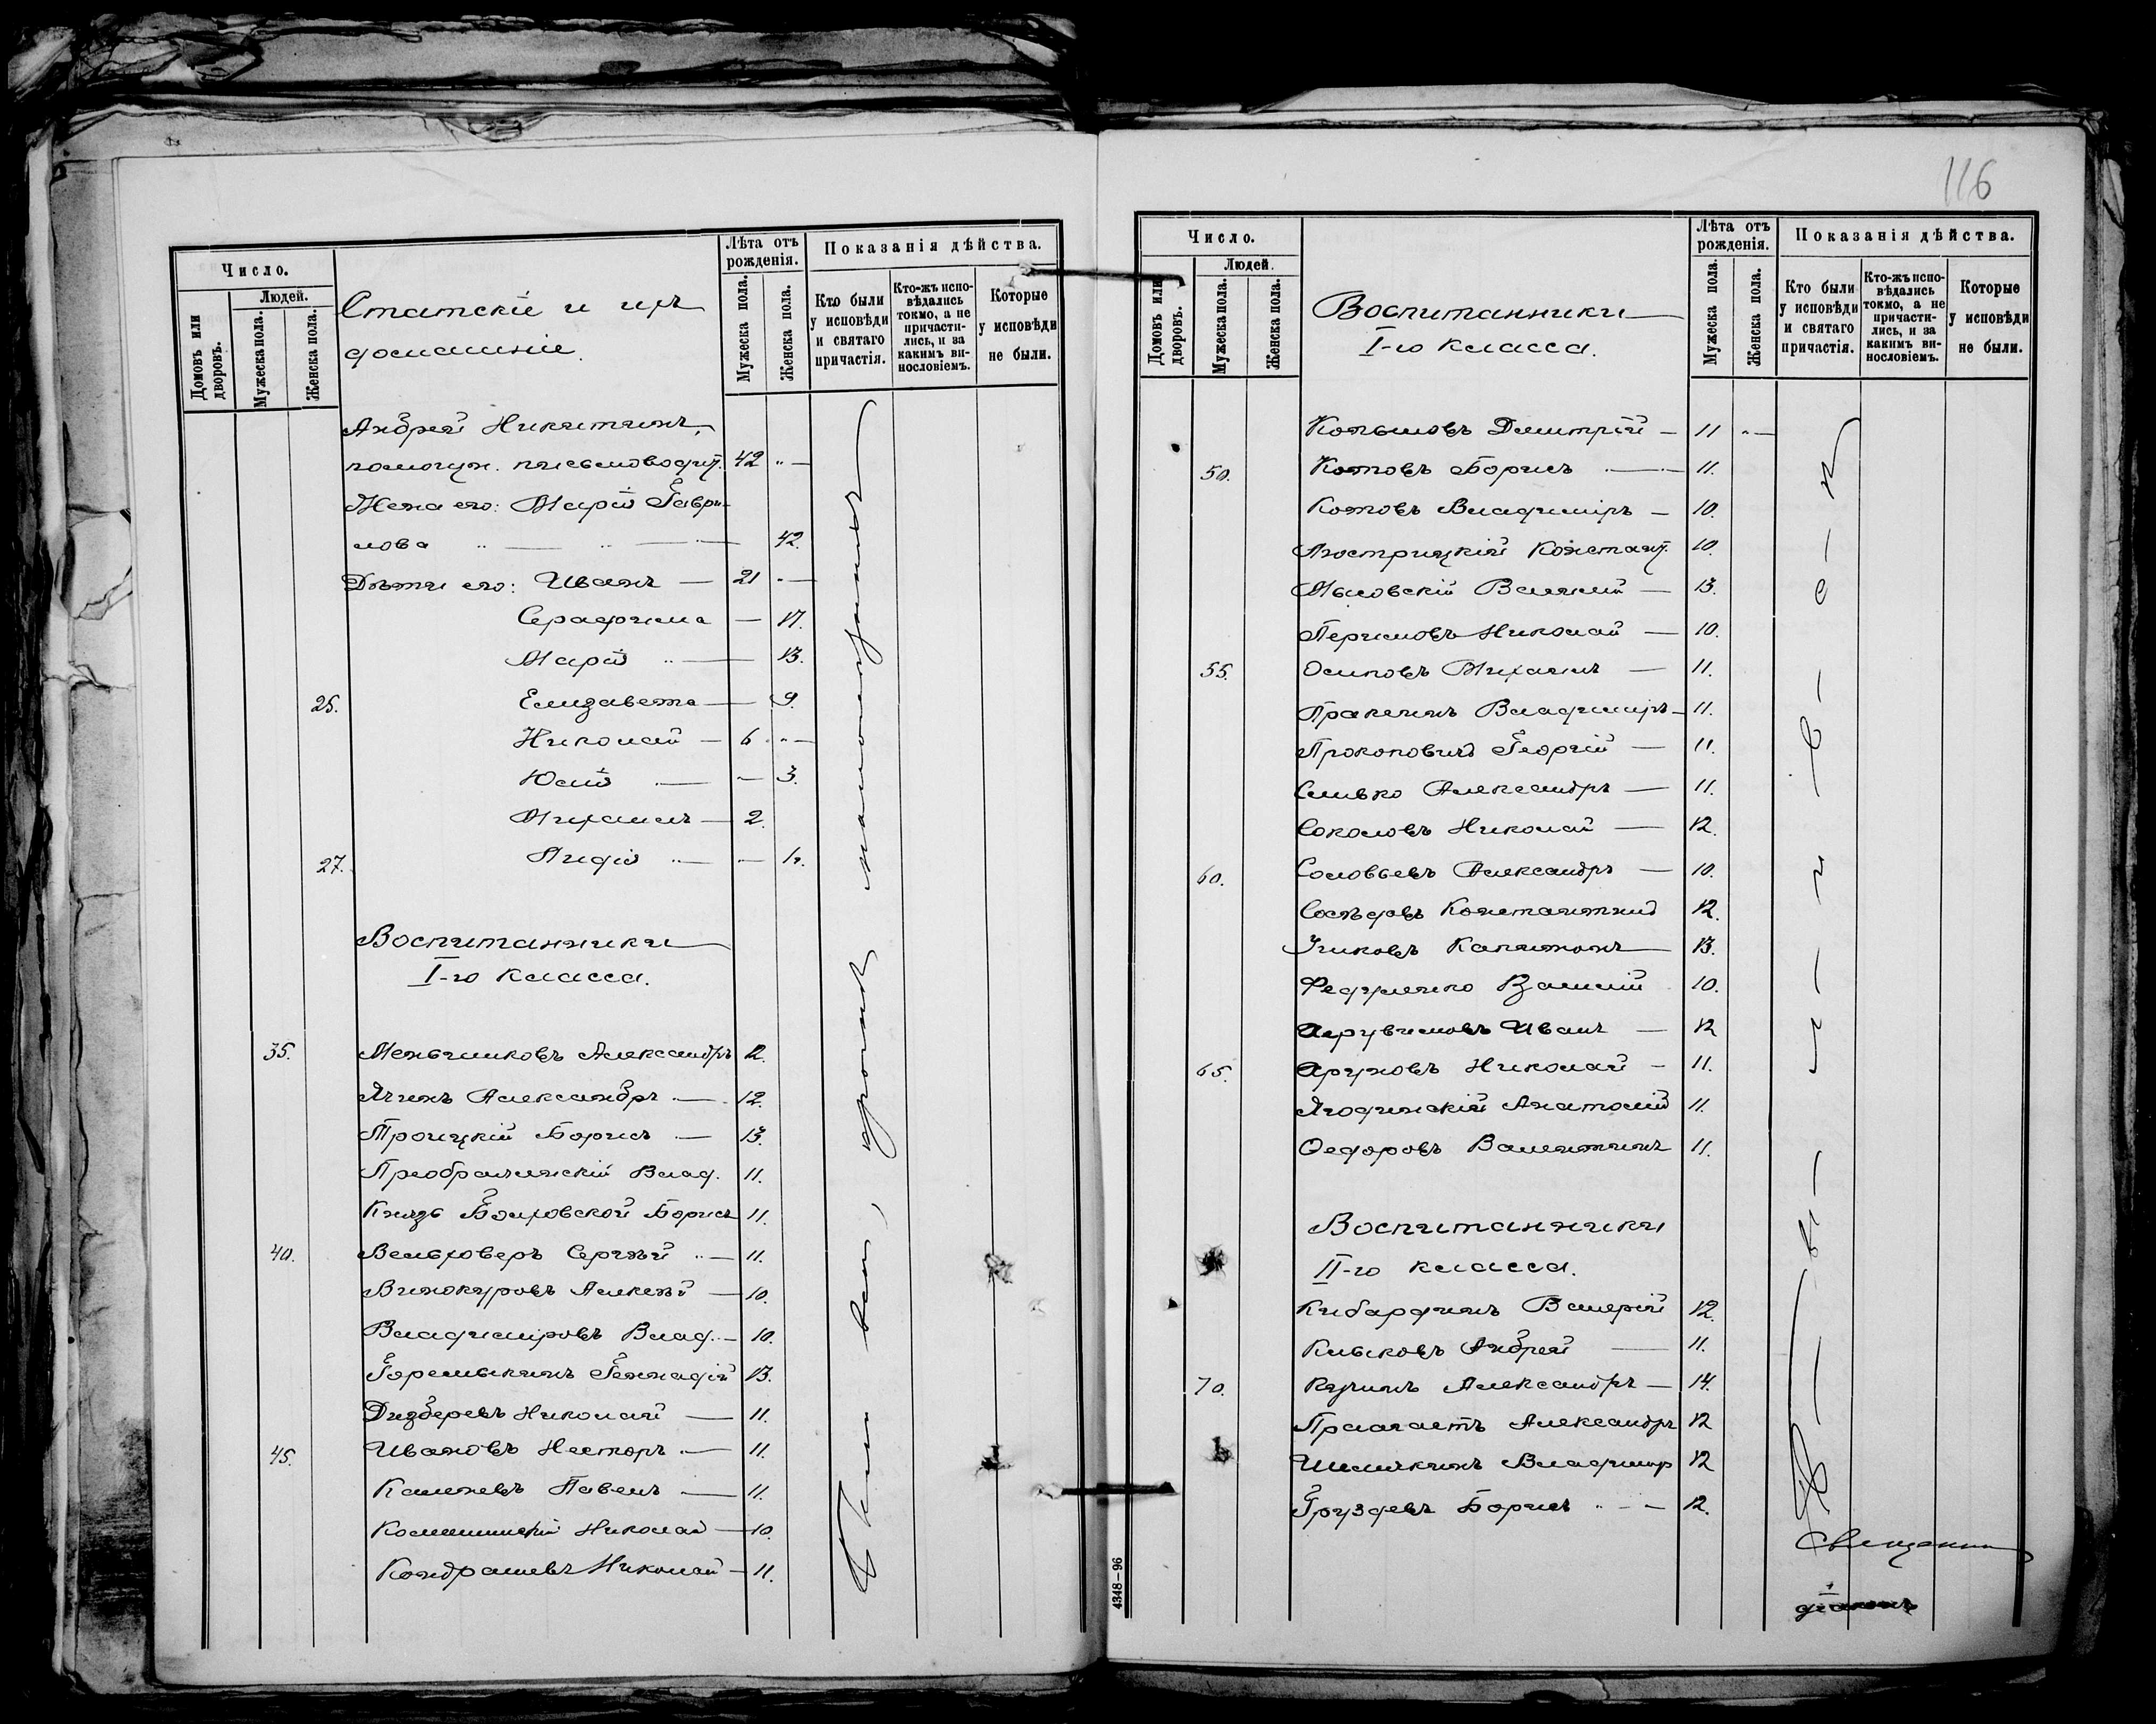 116
Число.
Людей.
Домовъ или дворовъ.
Мужеска пола.
Женска пола.
Статскіе и ихъ
домашніе.
Лѣта отъ рожденія.
Мужеска пола.
Женска пола.
Показанія дѣйства.
Кто были у исповѣди и святаго причастія.
Кто-жъ исповѣдались токмо, а не причастились, и за какимъ винословіемъ.
Которые у исповѣди не были.
Андрей Никитинъ,
помощн. письмоводит. 42 „ —
Жена его: Марія Гаври-
лова „ — „ — 42.
Дѣти его: Иванъ — 21 „ —
Серафима — 17.
Марія „ — 13.
25. Елизавета — 9.
Николай — 6 „ —
Юлія — — 3.
Михаилъ — 2.
27. Лидія „ — — 1 г.
Воспитанники
I-го класса.
35. Меньшиковъ Александръ 12.
Ячинъ Александръ — 12.
Троицкій Борисъ — 13.
Преображенскій Влад. 11.
Князь Болховской Борисъ 11.
40. Вельховеръ Сергѣй „ — 11.
Винокуровъ Алексѣй — 10.
Владиміровъ Влад. — 10.
Горемыкинъ Геннадій 13.
Дизберевъ Николай — 11.
45. Ивановъ Несторъ — 11.
Каменевъ Павелъ — 11.
Николай — 10.
Кондрашевъ Николай — 11.
Были вси, кромѣ малолетнихъ
Число.
Людей.
Домовъ или дворовъ.
Мужеска пола.
Женска пола.
Воспитанники
I-го класса.
Лѣта отъ рожденія.
Мужеска пола.
Женска пола.
Показанія дѣйства.
Кто были у исповѣди и святаго причастія.
Кто-жъ исповѣдались токмо, а не причастились, и за какимъ винословіемъ.
Которые у исповѣди не были.
Димитрій — 11 „ —
50. Котовъ Борисъ — 11.
Котовъ Владиміръ — 10.
Люстрицкій Констант. 10.
Лысовскій — 13.
Перимовъ Николай — 10.
55. Осиповъ Михаилъ — 11.
Пракинъ Владиміръ — 11.
Прокоповичъ Георгій — 11.
Сливко Александръ — 11.
Соколовъ Николай — 12.
60. Соловьевъ Александръ — 10.
Сосѣдовъ Константинъ 12.
Капитонъ — 13.
10.
Херувимовъ Иванъ — 12
65. Николай — 11.
Ягодинскій Анатолій 11.
Ѳедоровъ Валентинъ 11.
Воспитанники
II-го класса.
Кибардинъ Валерій 12.
Клыковъ Андрей — 11.
70. Кузинъ Александръ — 14.
Александръ 12
Шелякинъ Владимір 12
Груздевъ Борисъ „ — 12.
Священни
діаконъ
4348—96